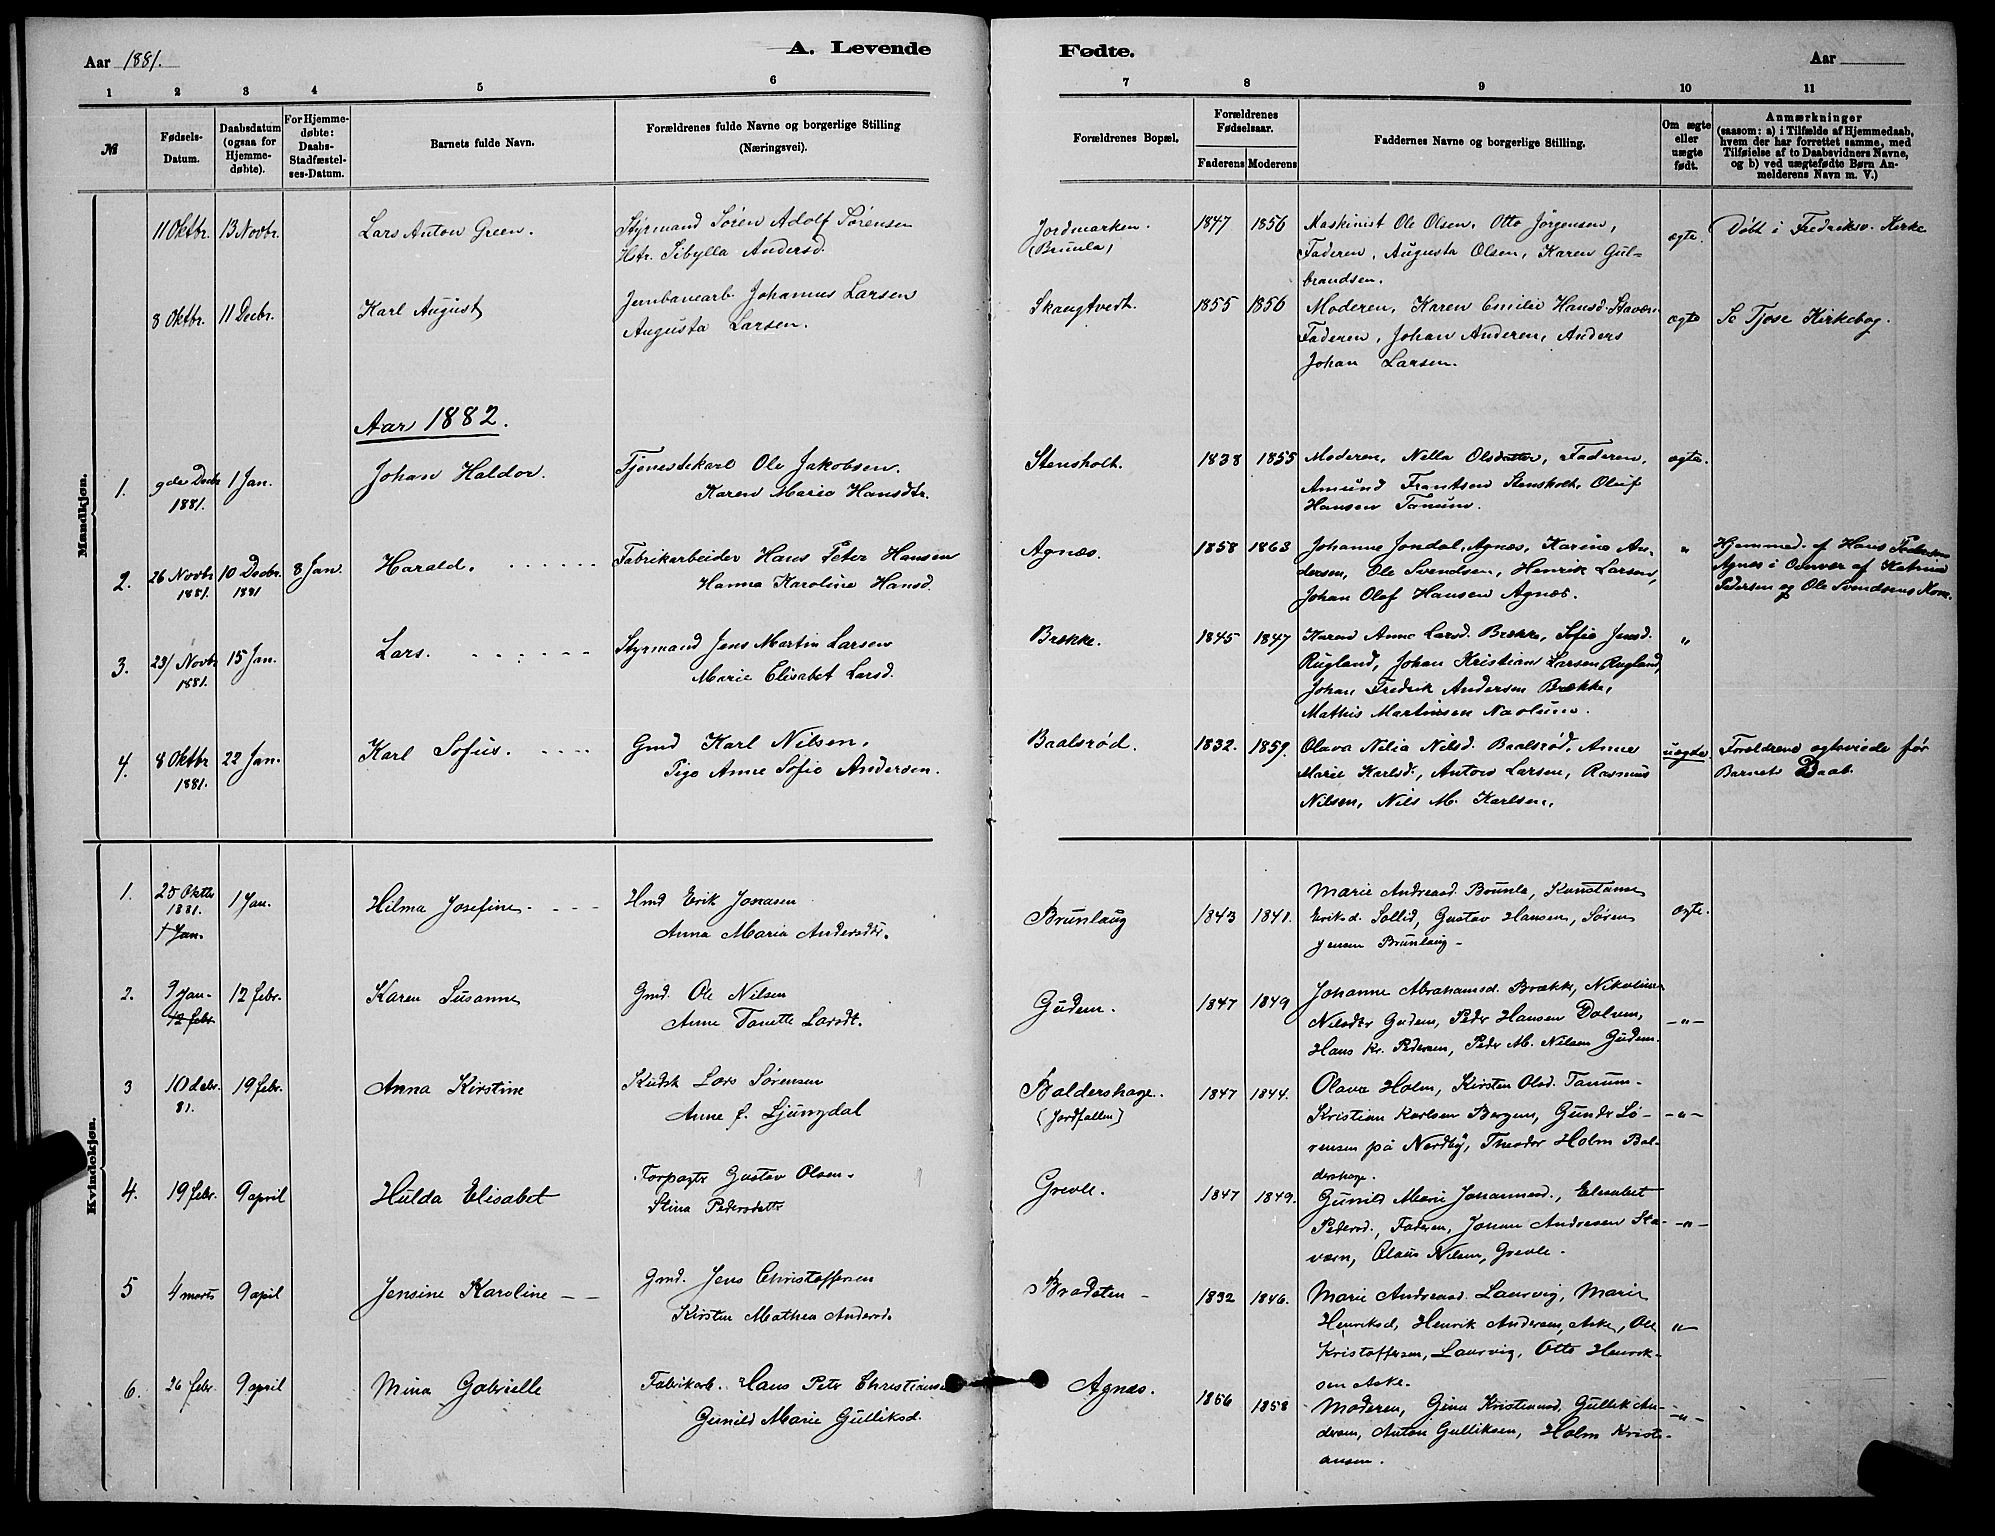 Aar 1881.
A. Levende
Fødte.
Aar
1 2 3 4 5 6 7 8 9 10 11
№
Fødsels-
Datum.
Daabsdatum
(ogsaa for
Hjemme-
døbte).
For Hjemme-
døbte:
Daabs-
Stadfæstel-
ses-Datum.
Barnets fulde Navn.
Forældrenes fulde Navne og borgerlige Stilling
(Næringsvei).
Forældrenes Bopæl.
Forældrenes
Fødselsaar.
Faderens Moderens
Faddernes Navne og borgerlige Stilling.
Om ægte
eller
uægte
født.
Anmærkninger
(saasom: a) i Tilfælde af Hjemmedaab,
hvem der har forrettet samme, med
Tilføielse af to Daabsvidners Navne,
og b) ved uægtefødte Børn An-
melderens Navn m. V.)
Mandkjøn.
11 Oktbr. 13 Novbr. Lars Anton Green.
Styrmand Søren Adolf Sørensen
Hstr. Sibylla Andersd.
Jordmarken.
(Brunla)
1847 1856
Maskinist Ole Olsen, Otto Jørgensen,
Faderen, Augusta Olsen, Karen Gul-
brandsen.
ægte.
Døbt i Fredriksv. Kirke
8 Oktbr. 11 Decbr. Karl August
Jernbanearb. Johannes Larsen
Augusta Larsen.
Skaugtvedt.
1855 1856
Moderen, Karen Emilie Hansd. Stavæn
Faderen, Johan Anderen, Anders
Johan Larsen.
ægte
Se Tjøse Kirkebog.
Aar 1882.
1. 9de Decbr 1 Jan. Johan Haldor.
1881.
Tjenestekarl Ole Jakobsen.
Karen Marie Hansdtr.
Stensholt.
1838 1855
Moderen, Nella Olsdatter, Faderen,
Amund Frantsen Stensholt, Oluf
Hansen Tanum.
ægte.
2. 26 Novbr 10 Decbr. 8 Jan. Harald.
1881. 1881
Fabrikarbeider Hans Peter Hansen
Hanna Karoline Hansd.
Agnæs.
1858 1863
Johanne Jondal, Agnæs, Karine An-
dersen, Ole Svendsen, Henrik Larsen,
Johan Olaf Hansen Agnæs.
"
Hjemmed. af Hans Pedersen
Agnes i Overvær af Katrine
Pedersen og Ole Svendsens Kone.
3. 23/ Novbr 15 Jan. Lars.
1881.
Styrmand Jens Martin Larsen
Marie Elisabet Larsd.
Brække.
1845 1847
Karen Anne Larsd. Brække, Sofie Jensd.
Rugland, Johan Kristian Larsen Rugland,
Johan Fredrik Andersen Brække,
Mathis Martinsen Naolum.
"
4. 8 Oktbr 22 Jan. Karl Sofus.
1881.
Gmd Karl Nilsen,
Pige Anne Sofie Andersen.
Baalsrød.
1832. 1859.
Olava Nilia Nilsd. Baalsrød, Anne
Marie Karlsd., Anton Larsen, Rasmus
Nilsen, Nils M. Karlsen.
uægte.
Forældrene ægteviede før
Barnets Daab.
Kvindekjøn.
1. 25 Oktbr 1 Jan. Hilma Josefine.
1881.
1 Jan.
Hmd Erik Jonasen
Anna Maria Andersdtr.
Brunlaug
1843 1841.
Marie Andreasd. Brunla, Konstanse
Eriksd. Sollid, Gustav Hansen, Søren
Jensen Brunlaug -
ægte.
2. 9 Jan- 12 febr. Karen Susanne
12 febr
Gmd. Ole Nilsen
Anne Tonette Larsdt.
Gudem.
1847 1849
Johanne Abrahamsd. Brække, Nikoline
Nilsdtr Gudem, Peder Hansen Dolven,
Hans Kr. Pedersen, Peder M. Nilsen Gudem.
-"-
3 10 debr. 19 febr. Anna Kirstine
81.
Kudsk Lars Sørensen
Anne f. Ljungdal
Baldershage.
(Jordfallen)
1847 1844.
Olava Holm, Kirsten Olsd. Tanum-
Kristian Karlsen Bergen, Gunder Sø-
rensen på Nordby, Theodor Holm Bal-
dershage.
-"-
4. 19 febr. 9 april Hulda Elisabet
Forpagtr Gustav Olsen.
Stina Pedersdattr
Grevle.
1847 1849.
Gunild Marie Johannesd., Elisabet
Pedersd., Faderen, Johan Andresen Sta-
værn, Olaus Nilsen, Grevle.
-"-
5 4 marts 9 april Jensine Karoline
Gmd. Jens Christoffersen
Kirsten Mathea Andersd.
Bradsten -
1832 1846.
Marie Andreasd. Laurvig, Marie
Henriksd, Henrik Andersen, Aske, Ole
Kristoffersen, Laurvig, Otto Henrik-
sen Aske.
"-
6. 26 febr. 9 april Mina Gabrielle
Fabrikarb. Hans Petr Christiansen
Gunild Marie Gulliksd.
Agnæs.
1856 1858
Moderen, Gina Kristiansd, Gullik An-
dersen, Anton Gulliksen, Holm Kristi-
ansen.
-"-